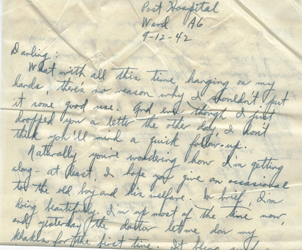 Post Hospital
Ward A6
9-12-42
Darling:
What with all this time hanging on my
hands, there's no reason why I shouldn't put
it some good use. And even though I just
dropped you a letter the other day, I don't
think you'll mind a quick follow-up.
Naturally you're wondering how I'm getting
along - at least, I hope you give an occasional
to the old boy and his welfare. In brief, I'm
doing beautifully. I'm up most of the time now,
and yesterday the doctor let me don my
khakis for the first time. It